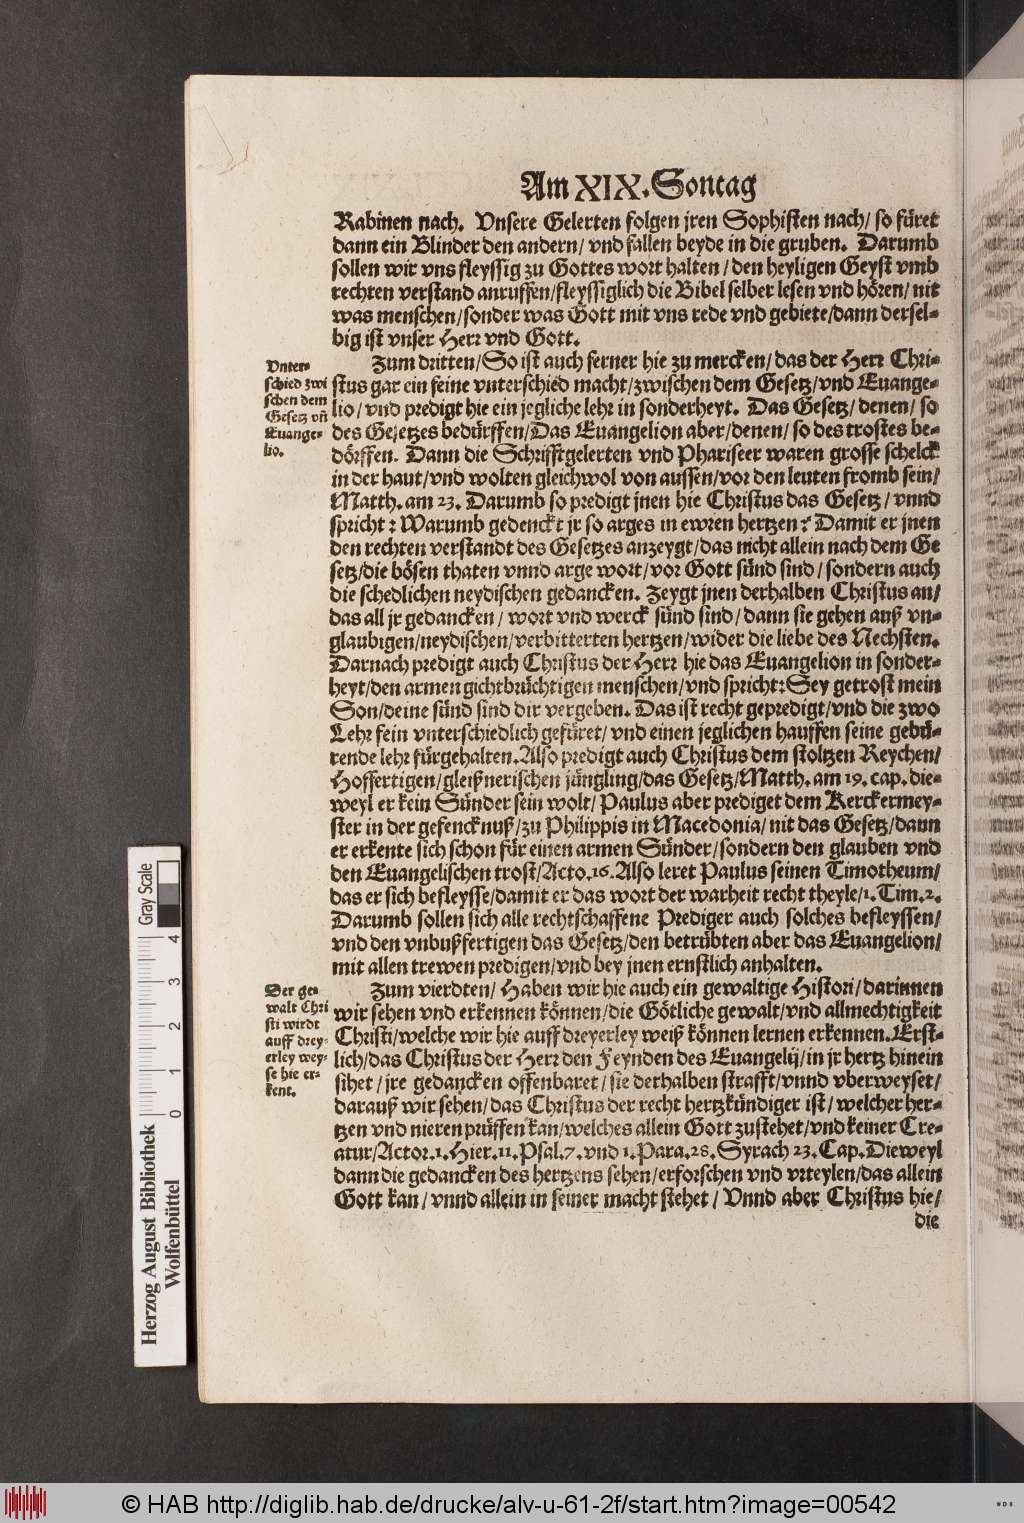 Am XIX. Sontag
Rabinen nach. Vnsere Gelerten folgen jren Sophisten nach/ so füret
dann ein Blinder den andern/ vnd fallen beyde in die gruben. Darumb
sollen wir vns fleyssig zu Gottes wort halten/ den heyligen Geyst vmb
rechten verstand anruffen/fleyssiglich die Bibel selber lesen vnd hören/ nit
was menschen/sonder was Gott mit vns rede vnd gebiete/dann dersel-
big ist vnser Herr vnd Gott.
Vnter-
schied zwi
schen dem
Gesetz vn̄
Euange-
lio.
Zum dritten/So ist auch ferner hie zu mercken/das der Herr Chri-
stus gar ein feine vnterschied macht/zwischen dem Gesetz/vnd Euange-
lio/vnd predigt hie ein jegliche lehr in sonderheyt. Das Gesetz/denen/so
des Gesetzes bedürffen/Das Euangelion aber/denen/so des trostes be-
dörffen. Dann die Schrifftgelerten vnd Phariseer waren grosse schelck
in der haut/vnd wolten gleichwol von aussen/vor den leuten fromb sein/
Matth. am 23. Darumb so predigt jnen hie Christus das Gesetz/vnnd
spricht: Warumb gedenckt jr so arges in ewren hertzen? Damit er jnen
den rechten verstandt des Gesetzes anzeygt/das nicht allein nach dem Ge
setz/die bösen thaten vnnd arge wort/vor Gott sünd sind/sondern auch
die schedlichen neydischen gedancken. Zeygt jnen derhalben Christus an/
das all jr gedancken/ wort vnd werck sünd sind/dann sie gehen auß vn-
glaubigen/neydischen/verbitterten hertzen/wider die liebe des Nechsten.
Darnach predigt auch Christus der Herr hie das Euangelion in sonder-
heyt/den armen gichtbrüchtigen menschen/vnd spricht: Sey getrost mein
Son/deine sünd sind dir vergeben. Das ist recht gepredigt/vnd die zwo
Lehr fein vnterschiedlich gefüret/ vnd einen jeglichen hauffen seine gebü-
rende lehr fürgehalten. Also predigt auch Christus dem stoltzen Reychen/
Hoffertigen/gleißnerischen jüngling/das Gesetz/Matth. am 19. cap. die-
weyl er kein Sünder sein wolt/ Paulus aber prediget dem Kerckermey-
ster in der gefencknuß/zu Philippis in Macedonia/nit das Gesetz/dann
er erkente sich schon für einen armen Sünder/sondern den glauben vnd
den Euangelischen trost/Acto.16. Also leret Paulus seinen Timotheum/
das er sich befleysse/damit er das wort der warheit recht theyle/1. Tim.2.
Darumb sollen sich alle rechtschaffene Prediger auch solches befleyssen/
vnd den vnbußfertigen das Gesetz/den betrübten aber das Euangelion/
mit allen trewen predigen/vnd bey jnen ernstlich anhalten.
Der ge-
walt Chri
sti wirdt
auff drey-
erley wey-
se hie er-
kent.
Zum vierdten/ Haben wir hie auch ein gewaltige Histori/darinnen
wir sehen vnd erkennen können/die Götliche gewalt/vnd allmechtigkeit
Christi/welche wir hie auff dreyerley weiß können lernen erkennen. Erst-
lich/das Christus der Herr den Feynden des Euangelij/in jr hertz hinein
sihet/jre gedancken offenbaret/sie derhalben strafft/vnnd vberweyset/
darauß wir sehen/das Christus der recht hertzkündiger ist/welcher her-
tzen vnd nieren prüffen kan/welches allein Gott zustehet/vnd keiner Cre-
atur/Actor.1. Hier.11. Psal.7. vnd 1. Para.28. Syrach 23. Cap. Dieweyl
dann die gedancken des hertzens sehen/erforschen vnd vrteylen/das allein
Gott kan/vnnd allein in seiner macht stehet/ Vnnd aber Christus hie/
die
Gray Scale
0 1 2 3 4
Herzog August Bibliothek
Wolfenbüttel
© HAB http://diglib.hab.de/drucke/alv-u-61-2f/start.htm?image=00542